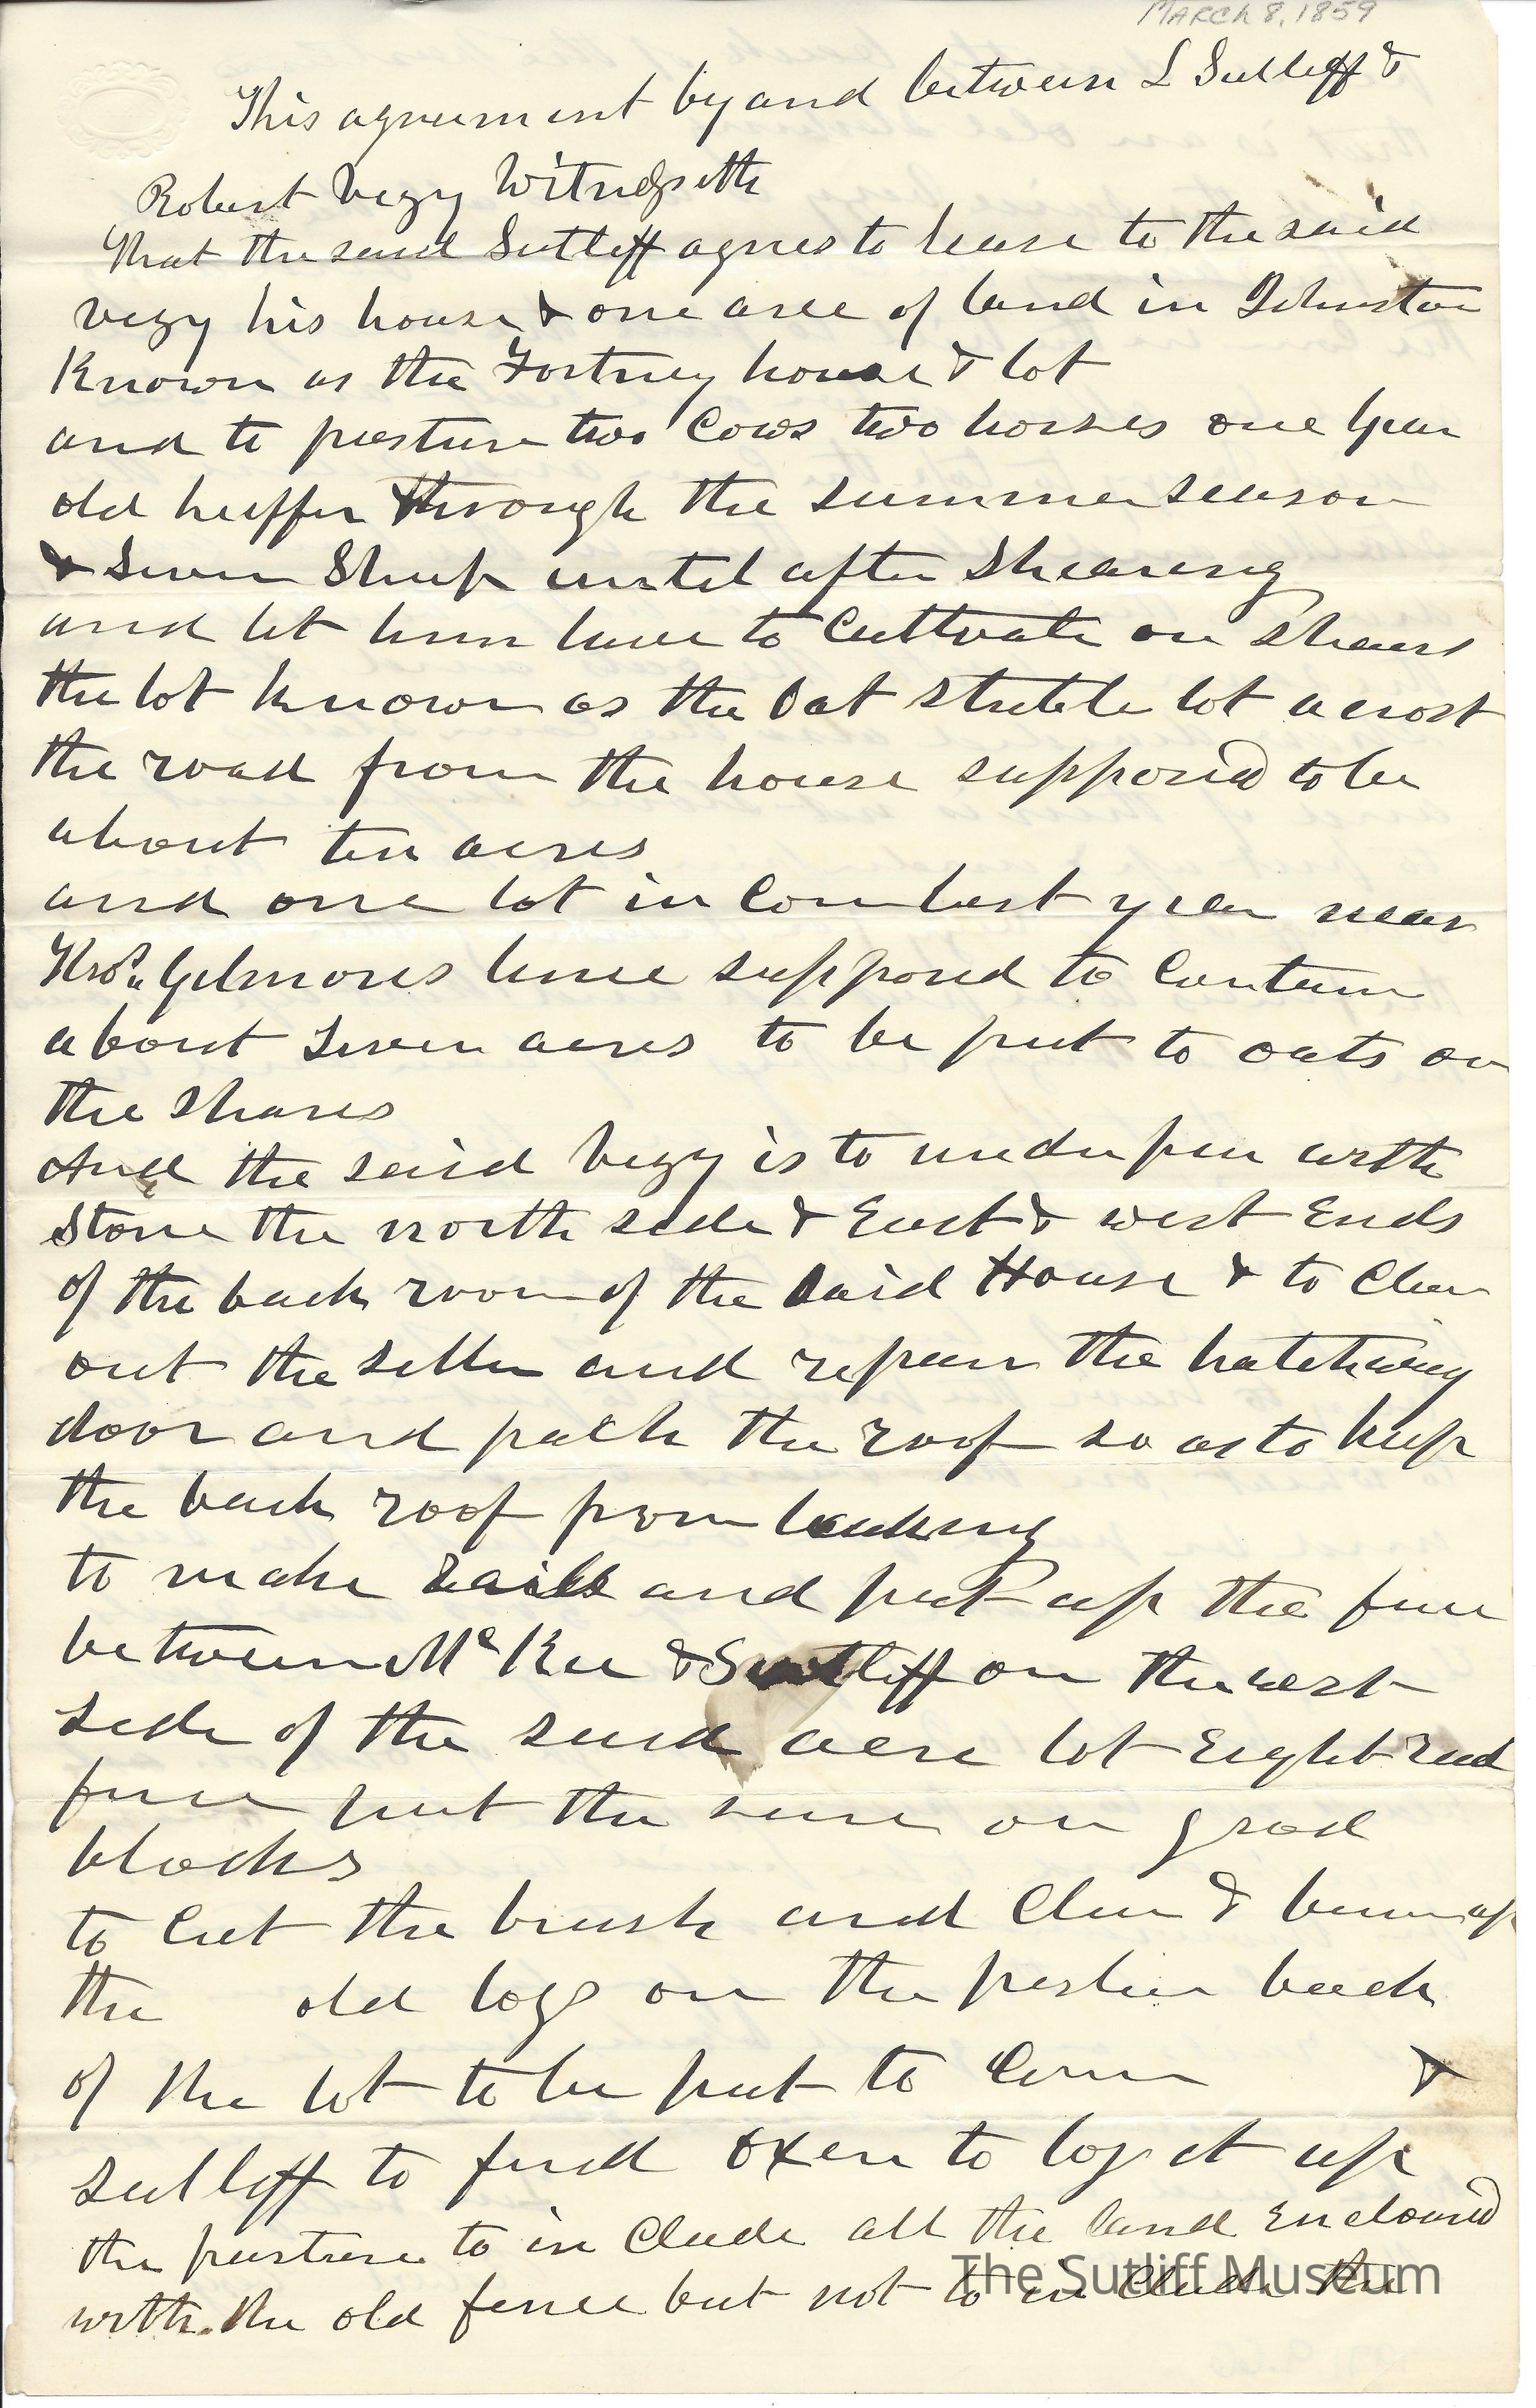 MARCH 8, 1859
This agreement by and between L Sutliff &
Robert Vezy Witnesseth
That the said Sutliff agrees to lease to the said
vezy his house & one acre of land in Johnston
Known as the Fortney house & lot
and to pasture two Cows two horses one year
old heiffer through the summer season
& Seven Sheep until after Shearing
and let him have to Cultivate on Shears
the lot known as the Oat stubble lot acrost
the road from the house supposed to be
about ten acres
and one lot in Corn last year near
Gilmores line supposed to Contain
about Seven acres to be put to oats on
the Shares
And the said Vezy is to under pin with
Stone the north side & East & west Ends
of the back room of the Said House & to Clean
out the seller and repair the hatchway
door and patch the roof so as to keep
the back roof from leaking
to make rails and put up the fence
between McKee & Sutliff on the west
side of the said acre lot Eight rail
fence put the same on good
blocks
to Cut the brush and Clear & burn up
the old logs on the pasture back
of the lot to be put to Corn &
Sutliff to find Oxen to log it up
the pasture to in Clude all the land Encloused
with the old fence but not to in Clude the
The Sutliff Museum